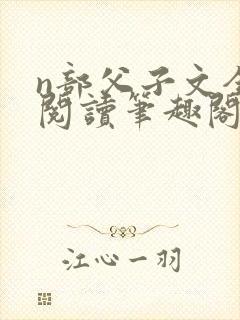 n部父子文全
閱讀筆趣閣
江心一羽